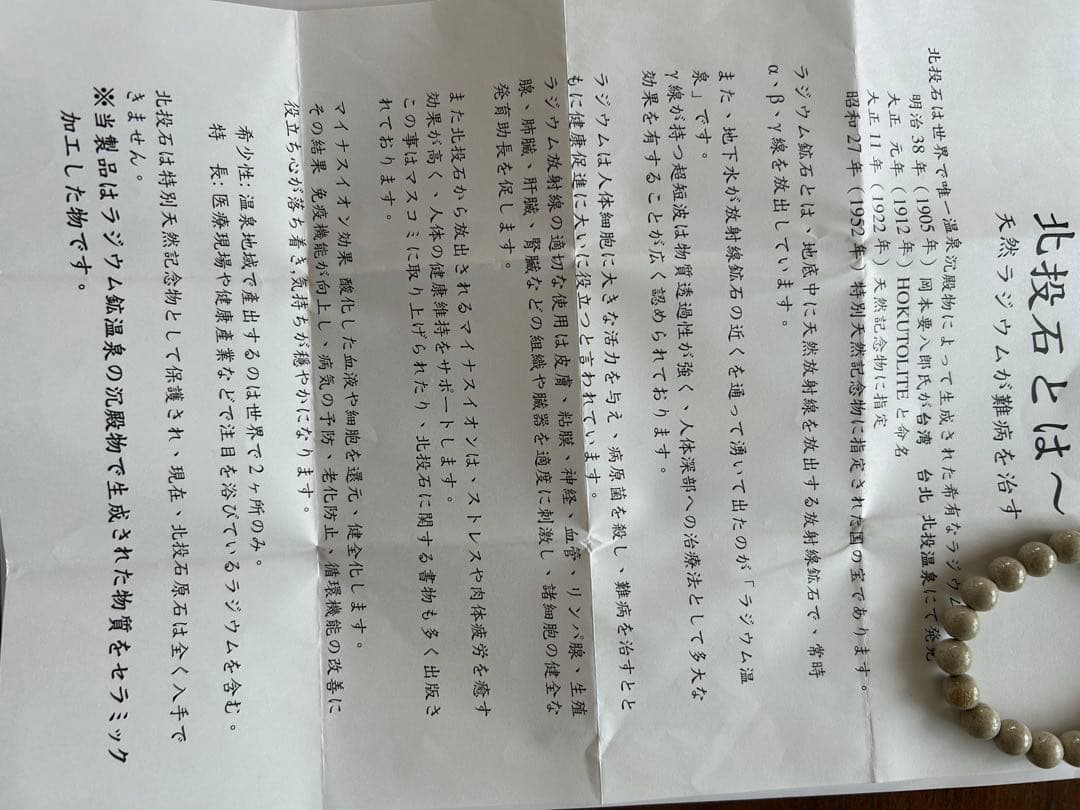 北投石とは～
天然ラジウムが難病を治す
北投石は世界で唯一温泉沉殿物によって生成された希有なラジウム
明治38年（1905年）岡本要八郎氏が台湾　台北　北投温泉にて発見
大正　元年（1912年）HOKUTOLITEと命名
大正11年（1922年）天然記念物に指定
昭和27年（1952年）特別天然記念物に指定された国の宝であります。
ラジウム鉱石とは、地底中に天然放射線を放出する放射線鉱石で、常時
α、β、γ線を放出しています。
また、地下水が放射線鉱石の近くを通って湧いて出たのが「ラジウム温
泉」です。
γ線が持つ超短波は物質透過性が強く、人体深部への治療法として多大な
効果を有することが広く認められております。
ラジウムは人体細胞に大きな活力を与え、病原菌を殺し、難病を治すとと
もに健康促進に大いに役立つと言われています。
ラジウム放射線の適切な使用は皮膚、粘膜、神経、血管、リンパ腺、生殖
腺、肺臓、肝臓、腎臓などの組織や臓器を適度に刺激し、諸細胞の健全な
発育助長を促します。
また北投石から放出されるマイナスイオンは、ストレスや肉体疲労を癒す
効果が高く、人体の健康維持をサポートします。
この事はマスコミに取り上げられたり、北投石に関する書物も多く出版さ
れております。
マイナスイオン効果 酸化した血液や細胞を還元、健全化します。
その結果 免疫機能が向上し、病気の予防、老化防止、循環機能の改善に
役立ち心が落ち着き,気持ちが穏やかになります。
希少性: 温泉地域で産出するのは世界で2ヶ所のみ。
特　長: 医療現場や健康産業などで注目を浴びているラジウムを含む。
北投石は特別天然記念物として保護され、現在、北投石原石は全く入手で
きません。
※当製品はラジウム鉱温泉の沉殿物で生成された物質をセラミック
加工した物です。